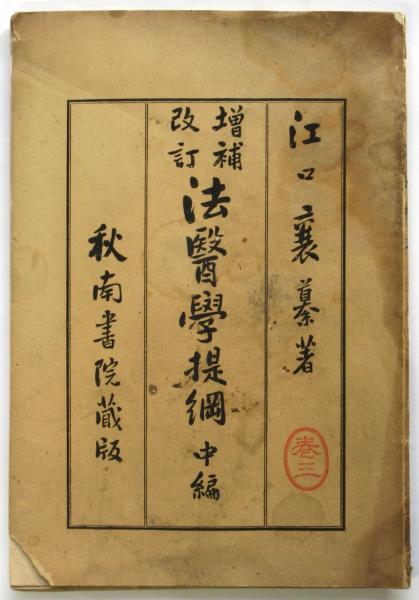 江口襄纂著
卷三
增補
改訂
法醫學提綱 中編
秋南書院藏版